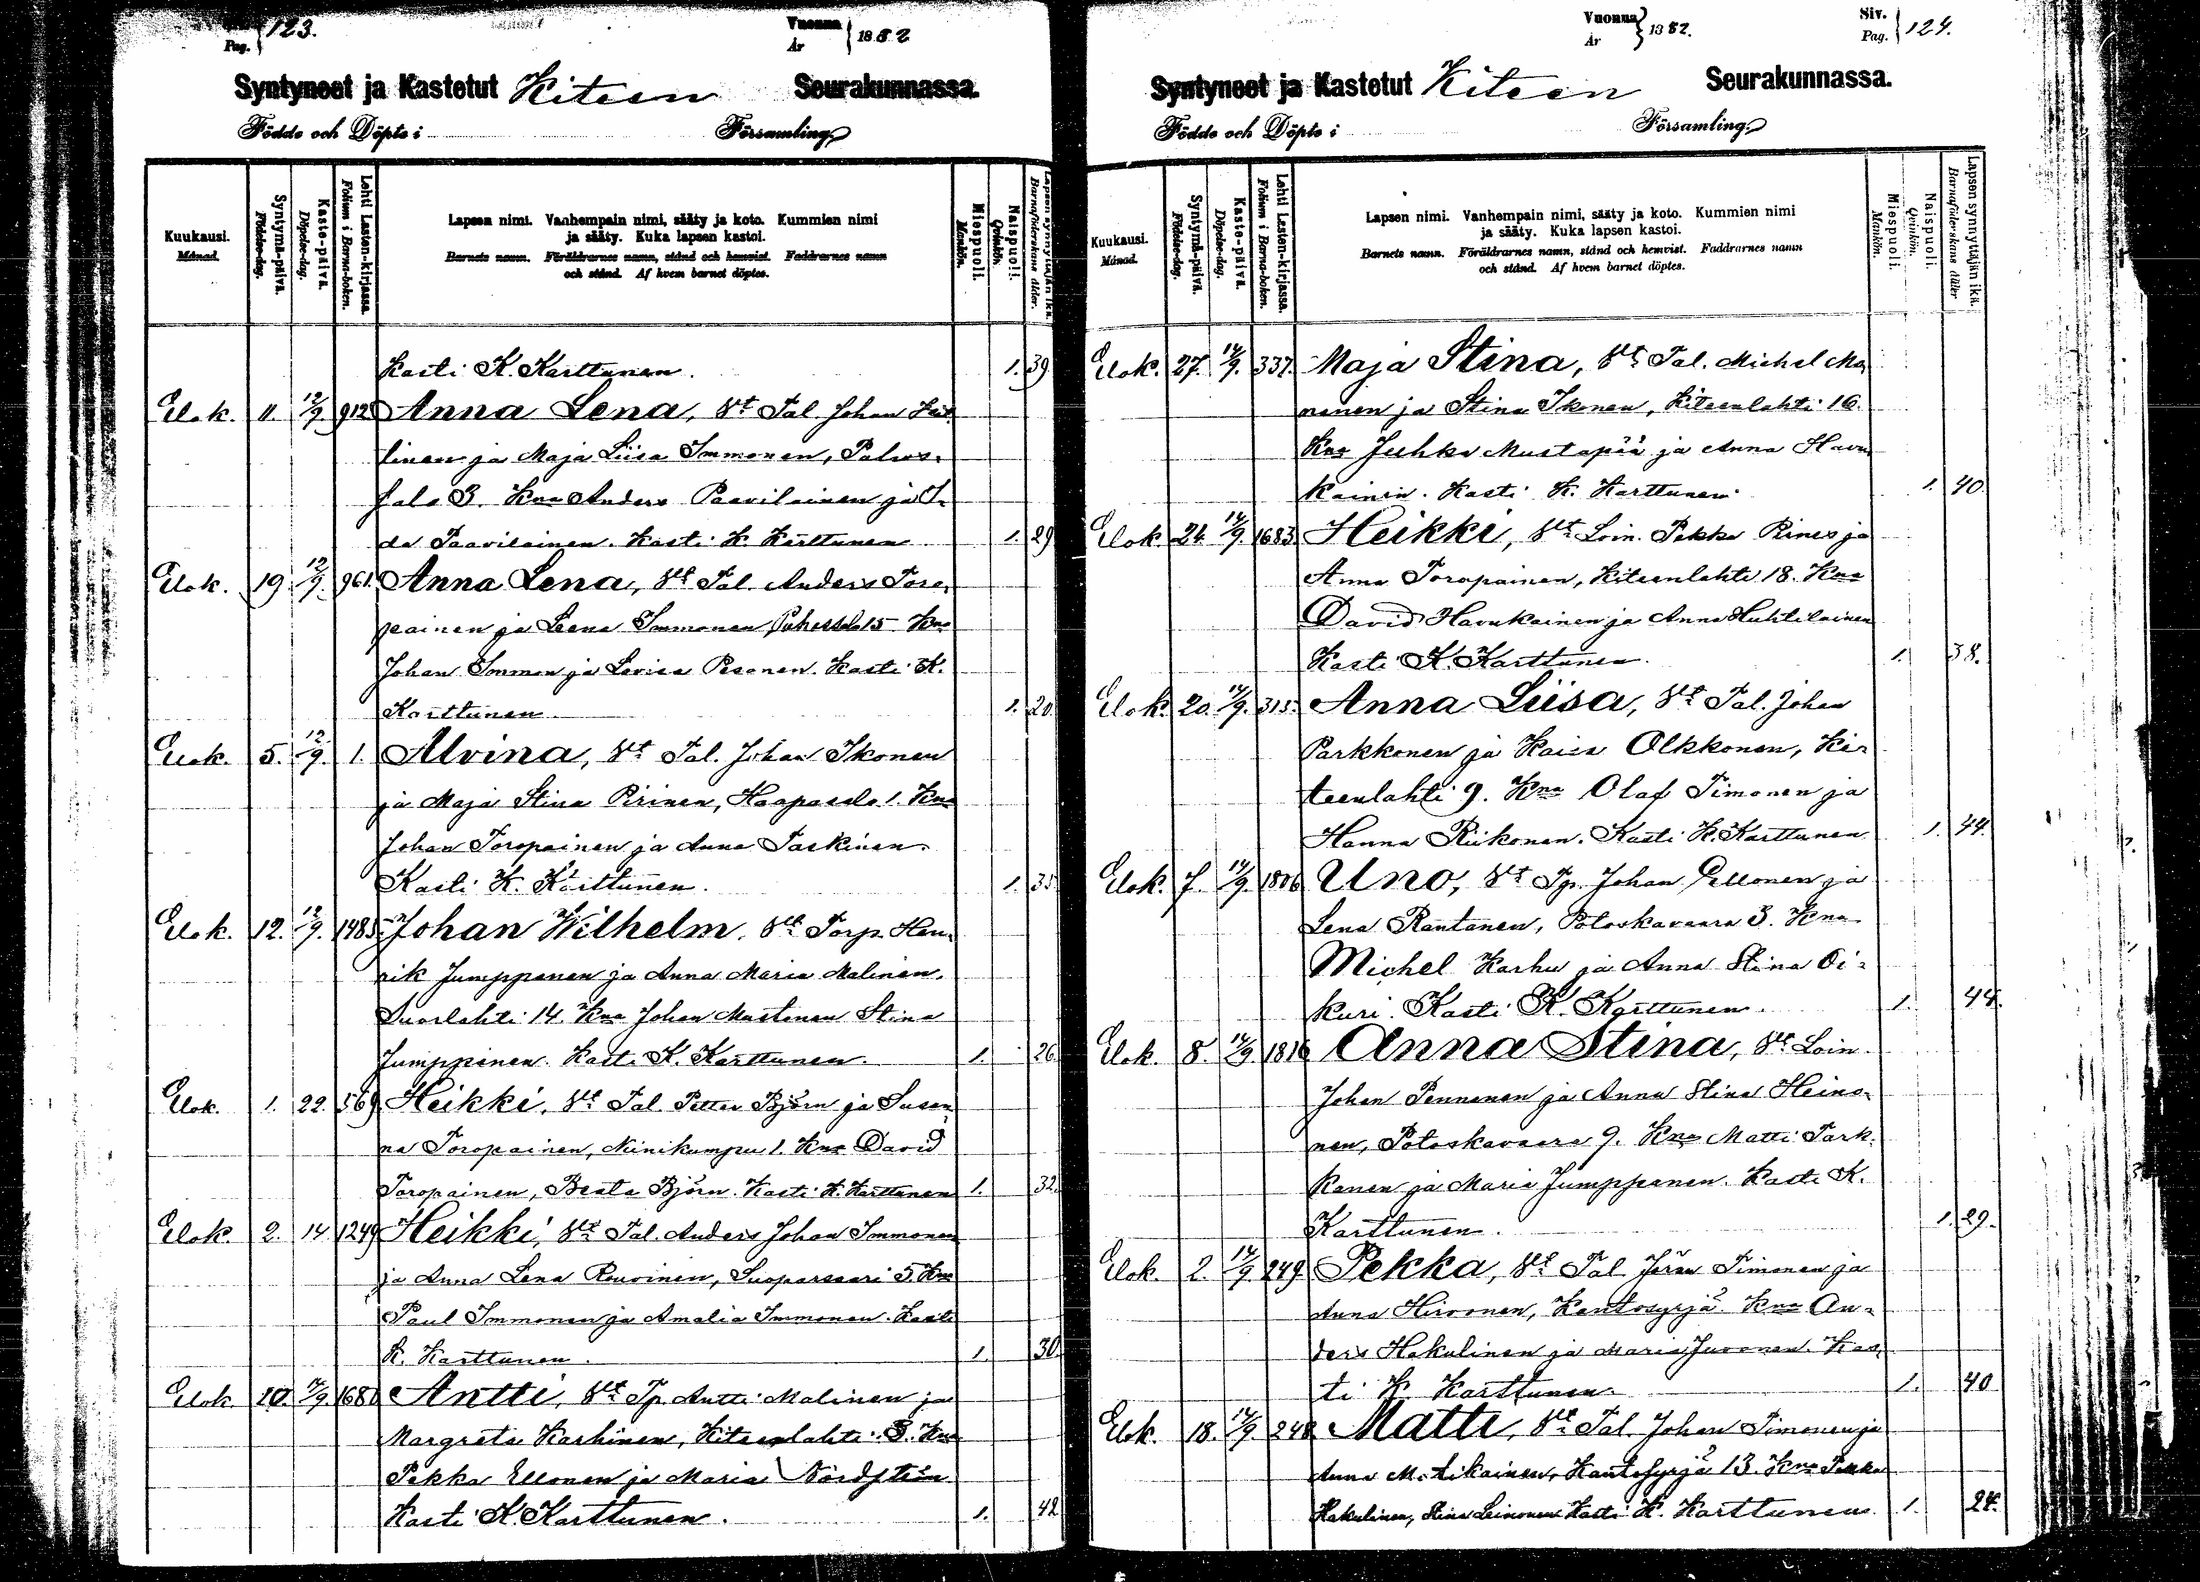 Pag. 123.
Vuonna
År
1882
Syntyneet ja Kastetut Kiteen Seurakunnassa.
Födde och Döpte i Församling.
Kuukausi.
Månad.
Syntymä-päivä.
Födelse-dag.
Kaste-päivä.
Döpelse-dag.
Lehti Lasten-kirjassa.
Folium i Barna-boken.
Lapsen nimi. Vanhempain nimi, sääty ja koto. Kummien nimi
ja sääty. Kuka lapsen kastoi.
Barnets namn. Föräldrarnes namn, stånd och hemvist. Faddrarnes namn
och stånd. Af hvem barnet döptes.
Miespuoli.
Mankön.
Naispuoli.
Qvinkön.
Lapsen synnyttäjän ikä.
Barnaföderskans ålder.
Kasti K. Karttunen. 1. 39
Elok. 11. 12/9 912 Anna Lena, Vt Tal. Johan
linen ja Maja Liisa Immonen, Palos-
salo 3. Kna Anders Paavilainen ja I-
da Paavilainen. Kasti K. Karttunen 1. 29
Elok. 19 12/9. 961. Anna Lena, Vt Tal. Anders Toro-
painen ja Lena Immonen, Puhossalo 15 Kna
Johan Immonen ja Lovisa Pesonen. Kasti K.
Karttunen 1. 20.
Elok. 5. 12/9. 1. Alvina, Vt Tal. Johan Ikonen
ja Maja Stina Pirinen, Haapasalo 1. Kna
Johan Toropainen ja Anna Taskinen.
Kasti K. Karttunen. 1. 35
Elok. 12. 12/9. 1485 Johan Wilhelm. Vt Torp. Hen-
rik Jumppanen ja Anna Maria Malinen,
Suorlahti 14. Kna Johan Mustonen Stina
Jumppanen. Kasti K. Karttunen. 1. 26.
Elok. 1. 22. 569 Heikki, Vt Tal. Petter Björn ja Susan
na Toropainen, Niinikumpu 1. Kna David
Toropainen, Beata Björn. Kasti K. Karttunen 1. 32.
Elok. 2. 14 1249 Heikki, Vt Tal. Anders Johan Immonen
ja Anna Lena Rouvinen, Suoparsaari 5. Kna
Paul Immonen ja Amalia Immonen. Kasti
K. Karttunen. 1. 30.
Elok 10. 14/9. 1680 Antti, Vt Tp. Antti Malinen ja
Margreta Karhinen, Kiteenlahti 3. Kna
Pekka Ellonen ja Maria Nordstein
Kasti K. Karttunen. 1. 42
Vuonna
År
1882.
Siv.
Pag. 124.
Syntyneet ja Kastetut Kiteen Seurakunnassa.
Födde och Döpte i Församling.
Kuukausi.
Månad.
Syntymä-päivä.
Födelse-dag.
Kaste-päivä.
Döpelse-dag.
Lehti Lasten-kirjassa.
Folium i Barna-boken.
Lapsen nimi. Vanhempain nimi, sääty ja koto. Kummien nimi
ja sääty. Kuka lapsen kastoi.
Barnets namn. Föräldrarnes namn, stånd och hemvist. Faddrarnes namn
och stånd. Af hvem barnet döptes.
Miespuoli.
Mankön.
Naispuoli.
Qvinkön.
Lapsen synnyttäjän ikä.
Barnaföderskans ålder
Elok. 27. 14/9. 337. Maja Stina, Vt Tal. Michel Mo-
nonen ja Stina Ikonen, Kiteenlahti 16.
Kna Juhka Mustapää ja Anna Havu-
kainen. Kasti K. Karttunen. 1. 40
Elok. 24. 14/9. 1683. Heikki, Vt Loin. Pekka Rines ja
Anna Toropainen, Kiteenlahti 18. Kna
David Havukainen ja Anna Huhtilainen
Kasti K. Karttunen. 1. 38.
Elok. 20. 14/9. 315. Anna Liisa, Vt Tal. Johan
Parkkonen ja Kaisa Olkkonen, Ki-
teenlahti 9. Kna Olaf Timonen ja
Hanna Riikonen. Kasti K. Karttunen 1. 44.
Elok. 7. 14/9. 1806 Uno, Vt Tp. Johan Ellonen ja
Lena Rantanen, Potoskavaara 3. Kna
Michel Karhu ja Anna Stina Oi-
kuri. Kasti K. Karttunen. 1. 44.
Elok. 8. 14/9 1816 Anna Stina, Vt Loin.
Johan Pennanen ja Anna Stina Heino-
nen, Potoskavaara 9. Kna Matti Tark-
kanen ja Maria Jumppanen. Kasti K.
Karttunen. 1. 29.
Elok. 2. 14/9 249. Pekka, Vt Tal. Jöran Timonen ja
Anna Hirvonen, Kantosyrjä. Kna An-
ders Hakulinen ja Maria Juvonen. Kas-
ti K. Karttunen. 1. 40
Elok. 18. 14/9. 248 Matti, Vt Tal. Johan Timonen ja
Anna M. Aikainen, Kantosyrjä 13. Kna Pekka
Hakulinen, Stina Leinonen Kasti K. Karttunen 1. 24.